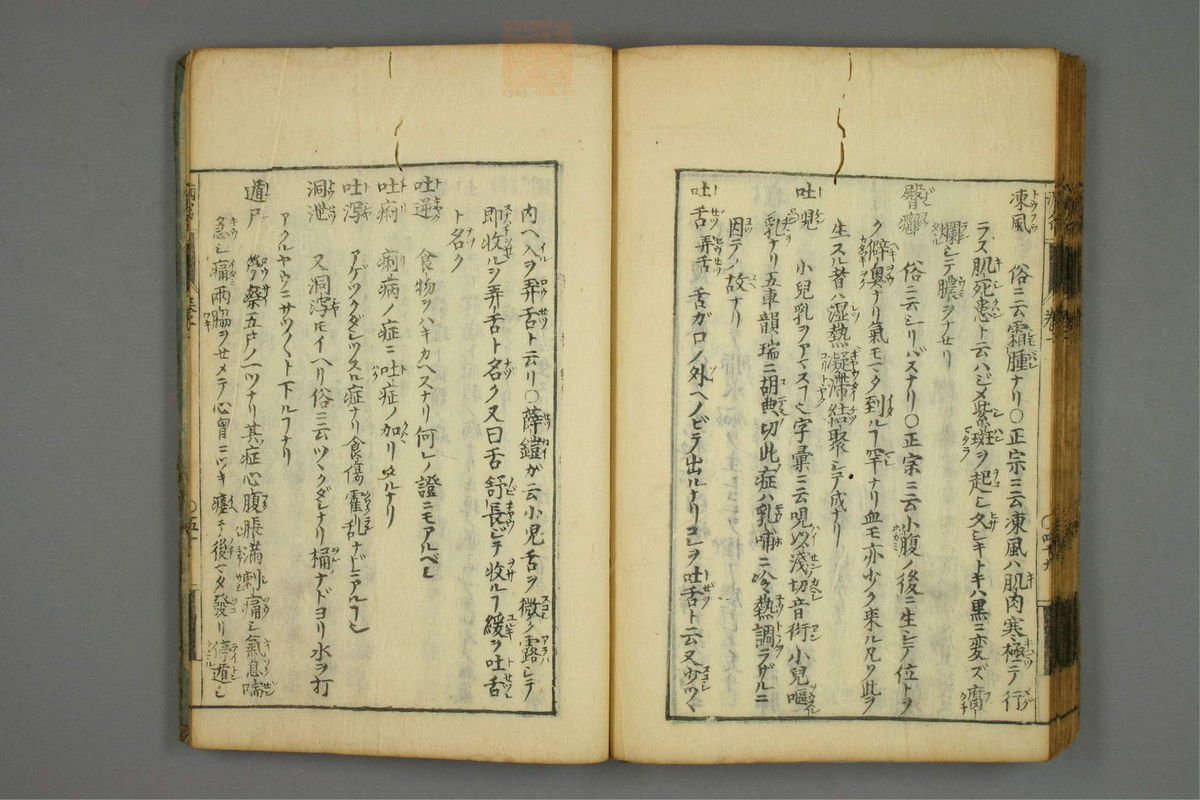 凍風　俗ニ云霜腫ナリ○正宗ニ云凍風ハ肌肉寒極テ行
ラズ肌死患ト云ハジメ紫斑ヲ起シ久シキトキハ黒ニ変ズ腐
爛シテ膿ヲナセリ
臀癰　俗ニ云シリバスナリ○正宗ニ云小腹ノ後ニ生シテ位トヲ
ク僻奥ナリ氣モマタ到ルヿ罕ナリ血モ亦少ク来ル凡ソ此ヲ
生スル者ハ湿熱凝滞結聚シテ成ナリ
吐哯　小兒乳ヲアマスヿ字彙ニ云哯以浅切音衍小兒嘔
乳ナリ五車韻瑞ニ胡典切此症ハ乳哺ニ冷熱調ラザルニ
因テノ故ナリ
吐舌弄舌　舌ガ口ノ外ヘノビテ出ルナリコレヲ吐舌ト云又少ツヽ
内ヘ入ヲ弄舌ト云リ○薛鎧が云小児舌ヲ微ク露シテ
即收ルヲ弄舌ト名ク又曰舌舒長シテ收ルヿ緩ヲ吐舌
ト名ク
吐逆　食物ヲハキカヘスナリ何レノ證ニモアルベシ
吐痢　痢病ノ症ニ吐症ノ加リタルナリ
吐瀉　アゲツクダシツスル症ナリ食傷霍乱ナドニアルヿ也
洞泄　又洞瀉モイヘリ俗ニ云ツヽクダシナリ桶ナドヨリ水ヲ打
アクルヤウニサツ〱ト下ルヿナリ
遁尸　五尸ノ一ツナリ其症心腹脹満刺痛シ氣息喘
急シ痛両脇ヲセメテ心胷ニツキ瘥テ後マタ發リ停遁シ